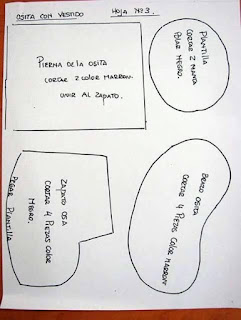 OSITA CON VESTIDO HOJA Nº3.
PIERNA DE LA OSITA
CORTAR 2 COLOR MARRON.
UNIR AL ZAPATO.
PLANTILLA
CORTAR 2
POLAR NEGRO.
ZAPATO OSA
CORTAR 4
PIEZAS COLOR
NEGRO.
PEGAR PLANTILLA
BRAZO OSITA
CORTAR 4 PIEZAS
COLOR MARRON